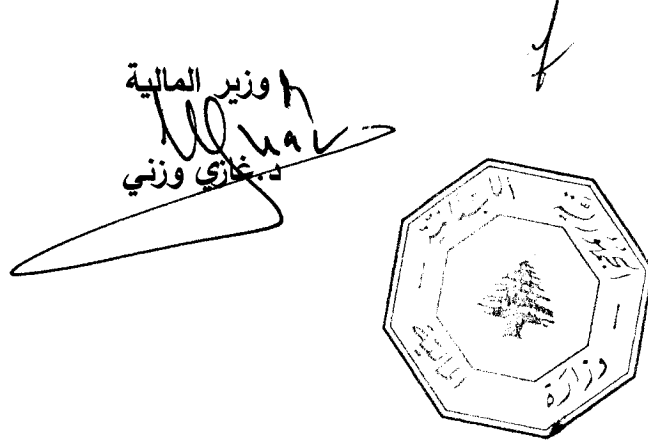 وزير المالية
د. غازي وزني
الجمهورية اللبنانية
وزارة المالية